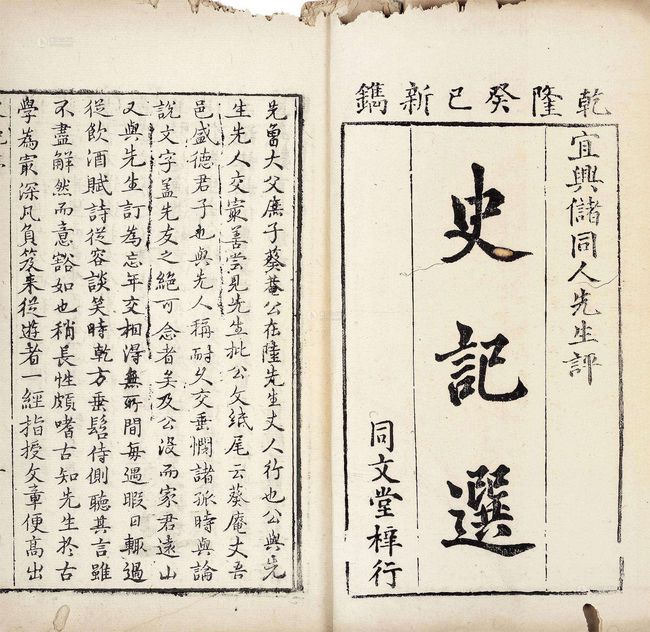 乾隆癸巳新鐫
宜興儲同人先生評
史記選
同文堂梓行
先曾大父廡子葵菴公在陸先生丈人行也公與先
生先人交最善嘗見先生批公文紙尾云葵庵丈吾
邑盛德君子也與先人稱耐久交垂憫諸孤時與論
說文字盖先友之絶可念者矣及公沒而家君遠山
又與先生訂為忘年交相得無所間每過暇日輙過
從飲酒賦詩從容談笑時乾方垂髫侍側聽其言雖
不盡解然而意豁如也稍長性頗嗜古知先生於古
學為最深凡負笈来從遊者一經指授文章便高出